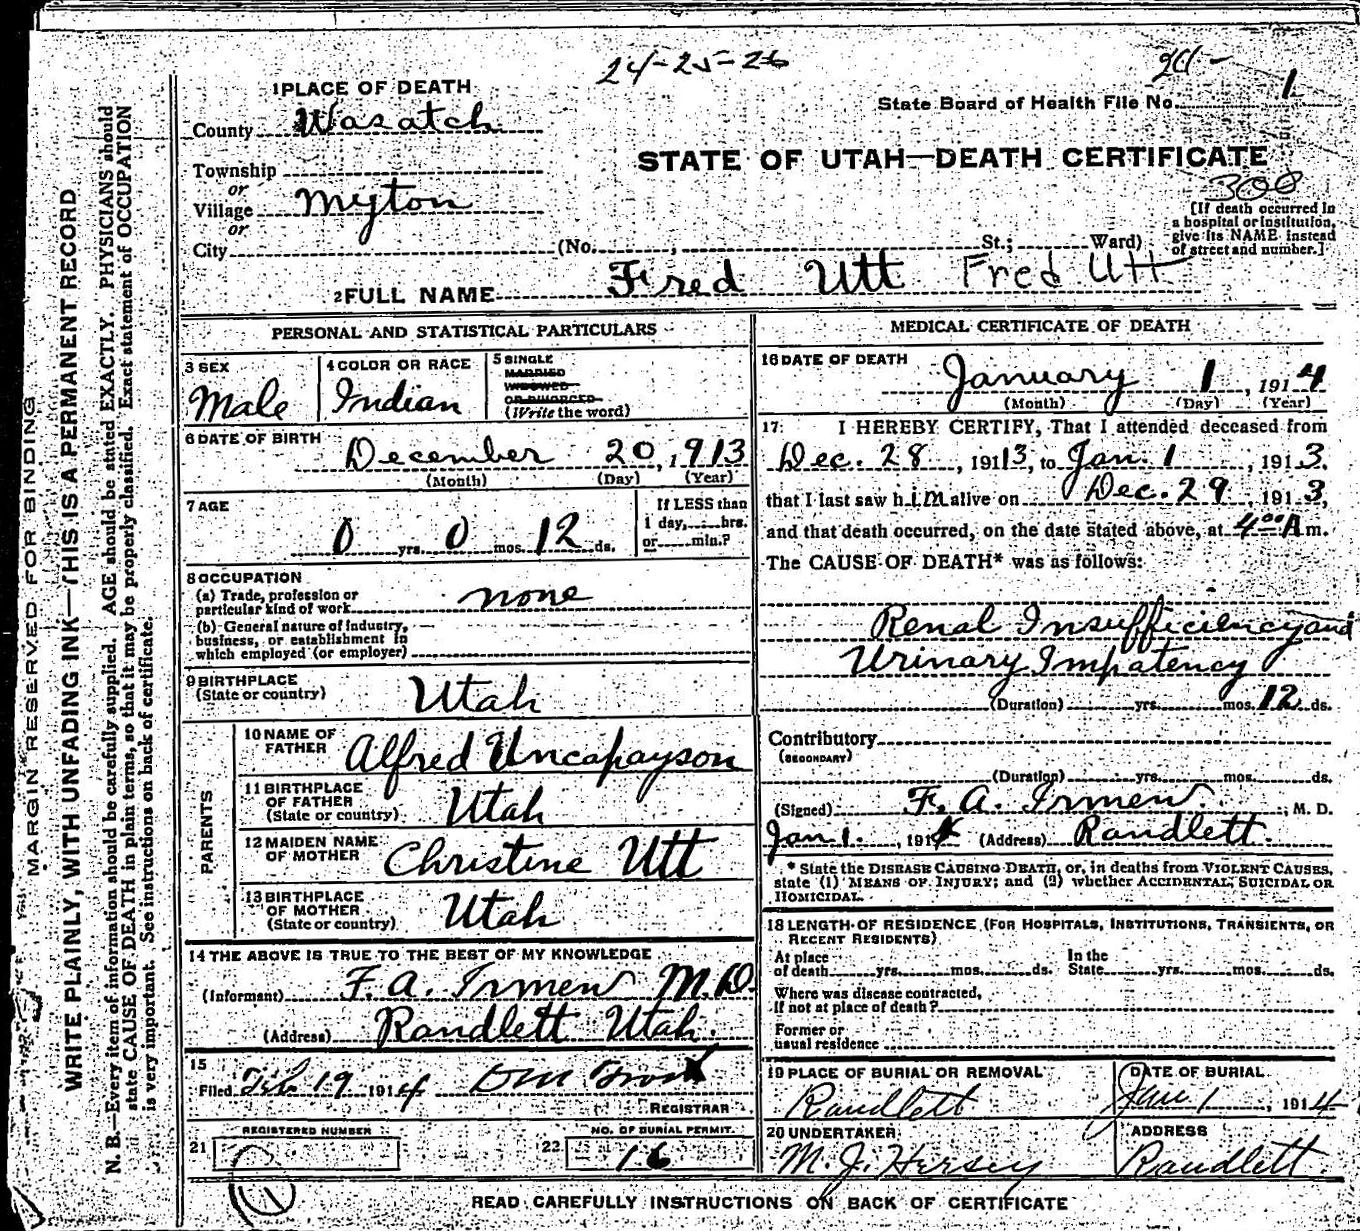 24-25-26
20-
1 PLACE OF DEATH
State Board of Health File No. 1
County Wasatch
STATE OF UTAH—DEATH CERTIFICATE
Township
or
300
Village Myton
or
[If death occurred in
a hospital or institution,
give its NAME instead
of street and number.]
City (No. , St.; Ward)
2 FULL NAME Fred Utt Fred Utt
PERSONAL AND STATISTICAL PARTICULARS
3 SEX
Male
4 COLOR OR RACE
Indian
5 SINGLE
MARRIED
WIDOWED
OR DIVORCED
(Write the word)
6 DATE OF BIRTH
December 20, 1913
(Month) (Day) (Year)
7 AGE
0 yrs. 0 mos. 12 ds.
If LESS than
1 day, hrs.
or min.?
8 OCCUPATION
(a) Trade, profession or
particular kind of work none
(b) General nature of industry,
business, or establishment in
which employed (or employer)
9 BIRTHPLACE
(State or country) Utah
PARENTS
10 NAME OF
FATHER Alfred Uncapayson
11 BIRTHPLACE
OF FATHER
(State or country) Utah
12 MAIDEN NAME
OF MOTHER Christine Utt
13 BIRTHPLACE
OF MOTHER
(State or country) Utah
14 THE ABOVE IS TRUE TO THE BEST OF MY KNOWLEDGE
(Informant) F. A. Irmen M.D.
(Address) Randlett Utah.
15
Filed Feb 19 1914
REGISTRAR
REGISTERED NUMBER
21
11
NO. OF BURIAL PERMIT.
22 16
MEDICAL CERTIFICATE OF DEATH
16 DATE OF DEATH
January 1, 1914
(Month) (Day) (Year)
17 I HEREBY CERTIFY, That I attended deceased from
Dec. 28, 19113, to Jan. 1, 1913.
that I last saw him alive on Dec. 29, 1913,
and that death occurred, on the date stated above, at 4 00 A m.
The CAUSE OF DEATH* was as follows:
Renal Insufficiency and
Urinary Impatency
(Duration) yrs. mos. 12 ds.
Contributory
(SECONDARY)
(Duration) yrs. mos. ds.
(Signed) F. A. Irmen, M. D.
Jan 1. , 1914 (Address) Randlett.
* State the DISEASE CAUSING DEATH, or, in deaths from VIOLENT CAUSES,
state (1) MEANS OF INJURY; and (2) whether ACCIDENTAL, SUICIDAL OR
HOMICIDAL.
18 LENGTH OF RESIDENCE (FOR HOSPITALS, INSTITUTIONS, TRANSIENTS, OR
RECENT RESIDENTS)
At place
of death yrs. mos. ds.
In the
State yrs. mos. ds.
Where was disease contracted,
If not at place of death?
Former or
usual residence
19 PLACE OF BURIAL OR REMOVAL
Randlett
DATE OF BURIAL
Jan 1, 1914
20 UNDERTAKER
M. J. Hersey
ADDRESS
Randlett.
READ CAREFULLY INSTRUCTIONS ON BACK OF CERTIFICATE
MARGIN RESERVED FOR BINDING
WRITE PLAINLY, WITH UNFADING INK—THIS IS A PERMANENT RECORD
N. B.—Every item of information should be carefully supplied. AGE should be stated EXACTLY. PHYSICIANS should
state CAUSE OF DEATH in plain terms, so that it may be properly classified. Exact statement of OCCUPATION
is very important. See instructions on back of certificate.